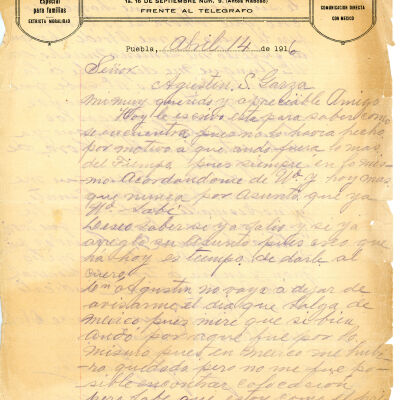 Especial
para familias
ESTRICTA MORALIDAD
1a. 16 DE SEPTIEMBRE NUM. 9. (Antes Raboso)
FRENTE AL TELEGRAFO
COMUNICACION DIRECTA
CON MEXICO
Puebla, Abril 14 de 1916
Señor
Agustin S. Garza
mi muy querido y apreciable Amigo
Hoy le escribo esta para saber como
se encuentra pues no lo havia hecho
por motivo a que ando fuera lo mas
del Tiempo pues siempre en lo mis
mo Acordandome de Ud. y hoy mas
que nunca por Asunto que ya
Ud. Sabe
Deseo saber si ya salio y si ya
arreglo su asunto pues creo que
ha hoy es tiempo de darle al
Agustin no vaya a dejar de
avisarme el dia que salga de
Mexico pues mire que si bien
ando por aqui fue por lo
mismo pues en Mexico me hubi
ra quedado pero no me fue po
sible encontrar colocacion
pero sabe que estoy como el